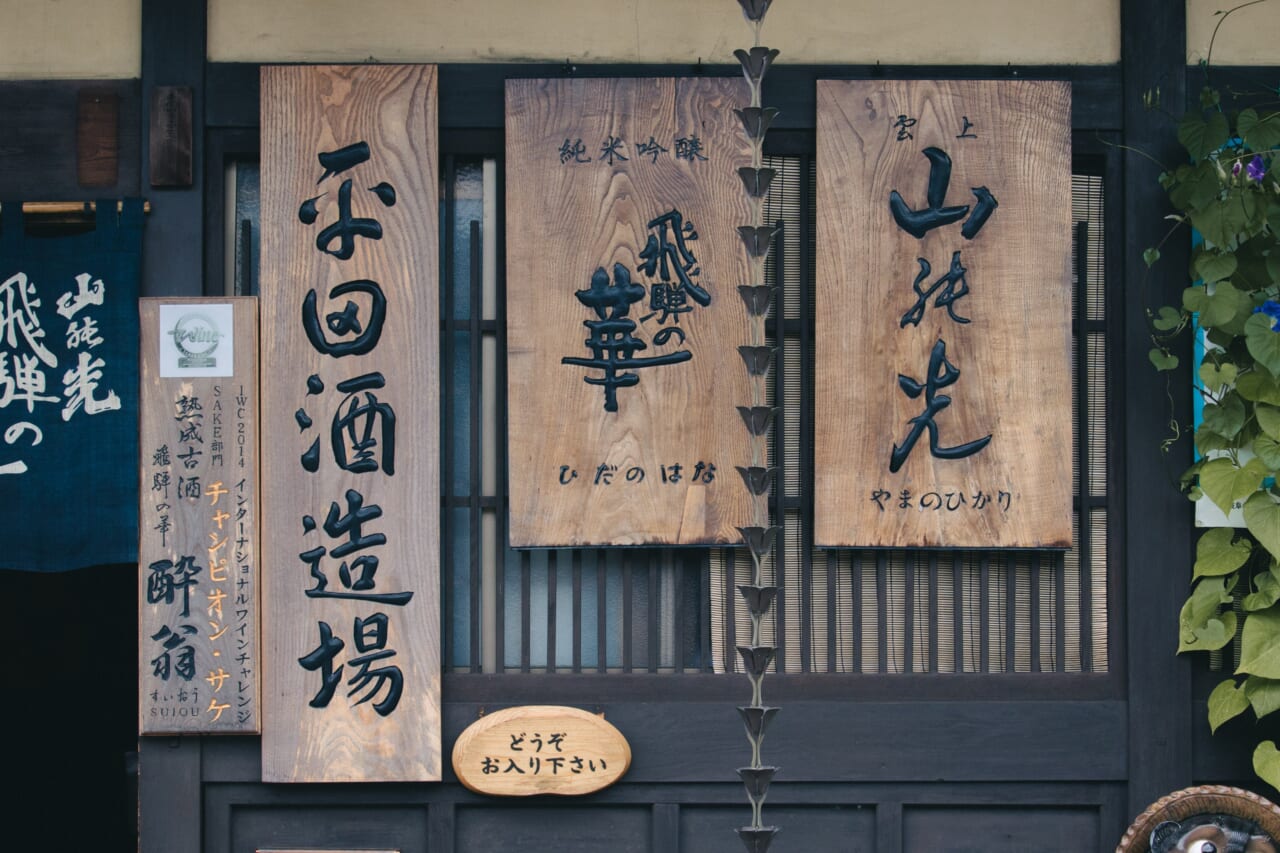 山の光
飛騨の
IWC2014 インターナショナルワインチャレンジ
SAKE部門 チャンピオン・サケ
熟成古酒
飛騨の華 酔翁
すいおう
SUIOU
平田酒造場
純米吟醸
飛騨の
華
ひだのはな
雲上
山の光
やまのひかり
どうぞ
お入り下さい